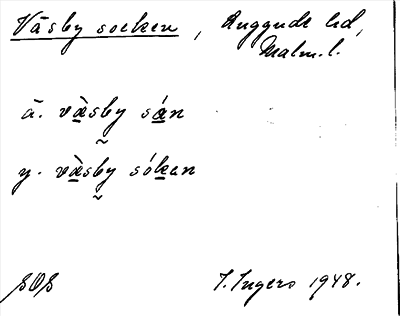 Väsby socken, Luggude hd,
Malm.l.
ä. vä̀sby sán
y. vä̀sby sóken
SOS I. Ingers 1948.